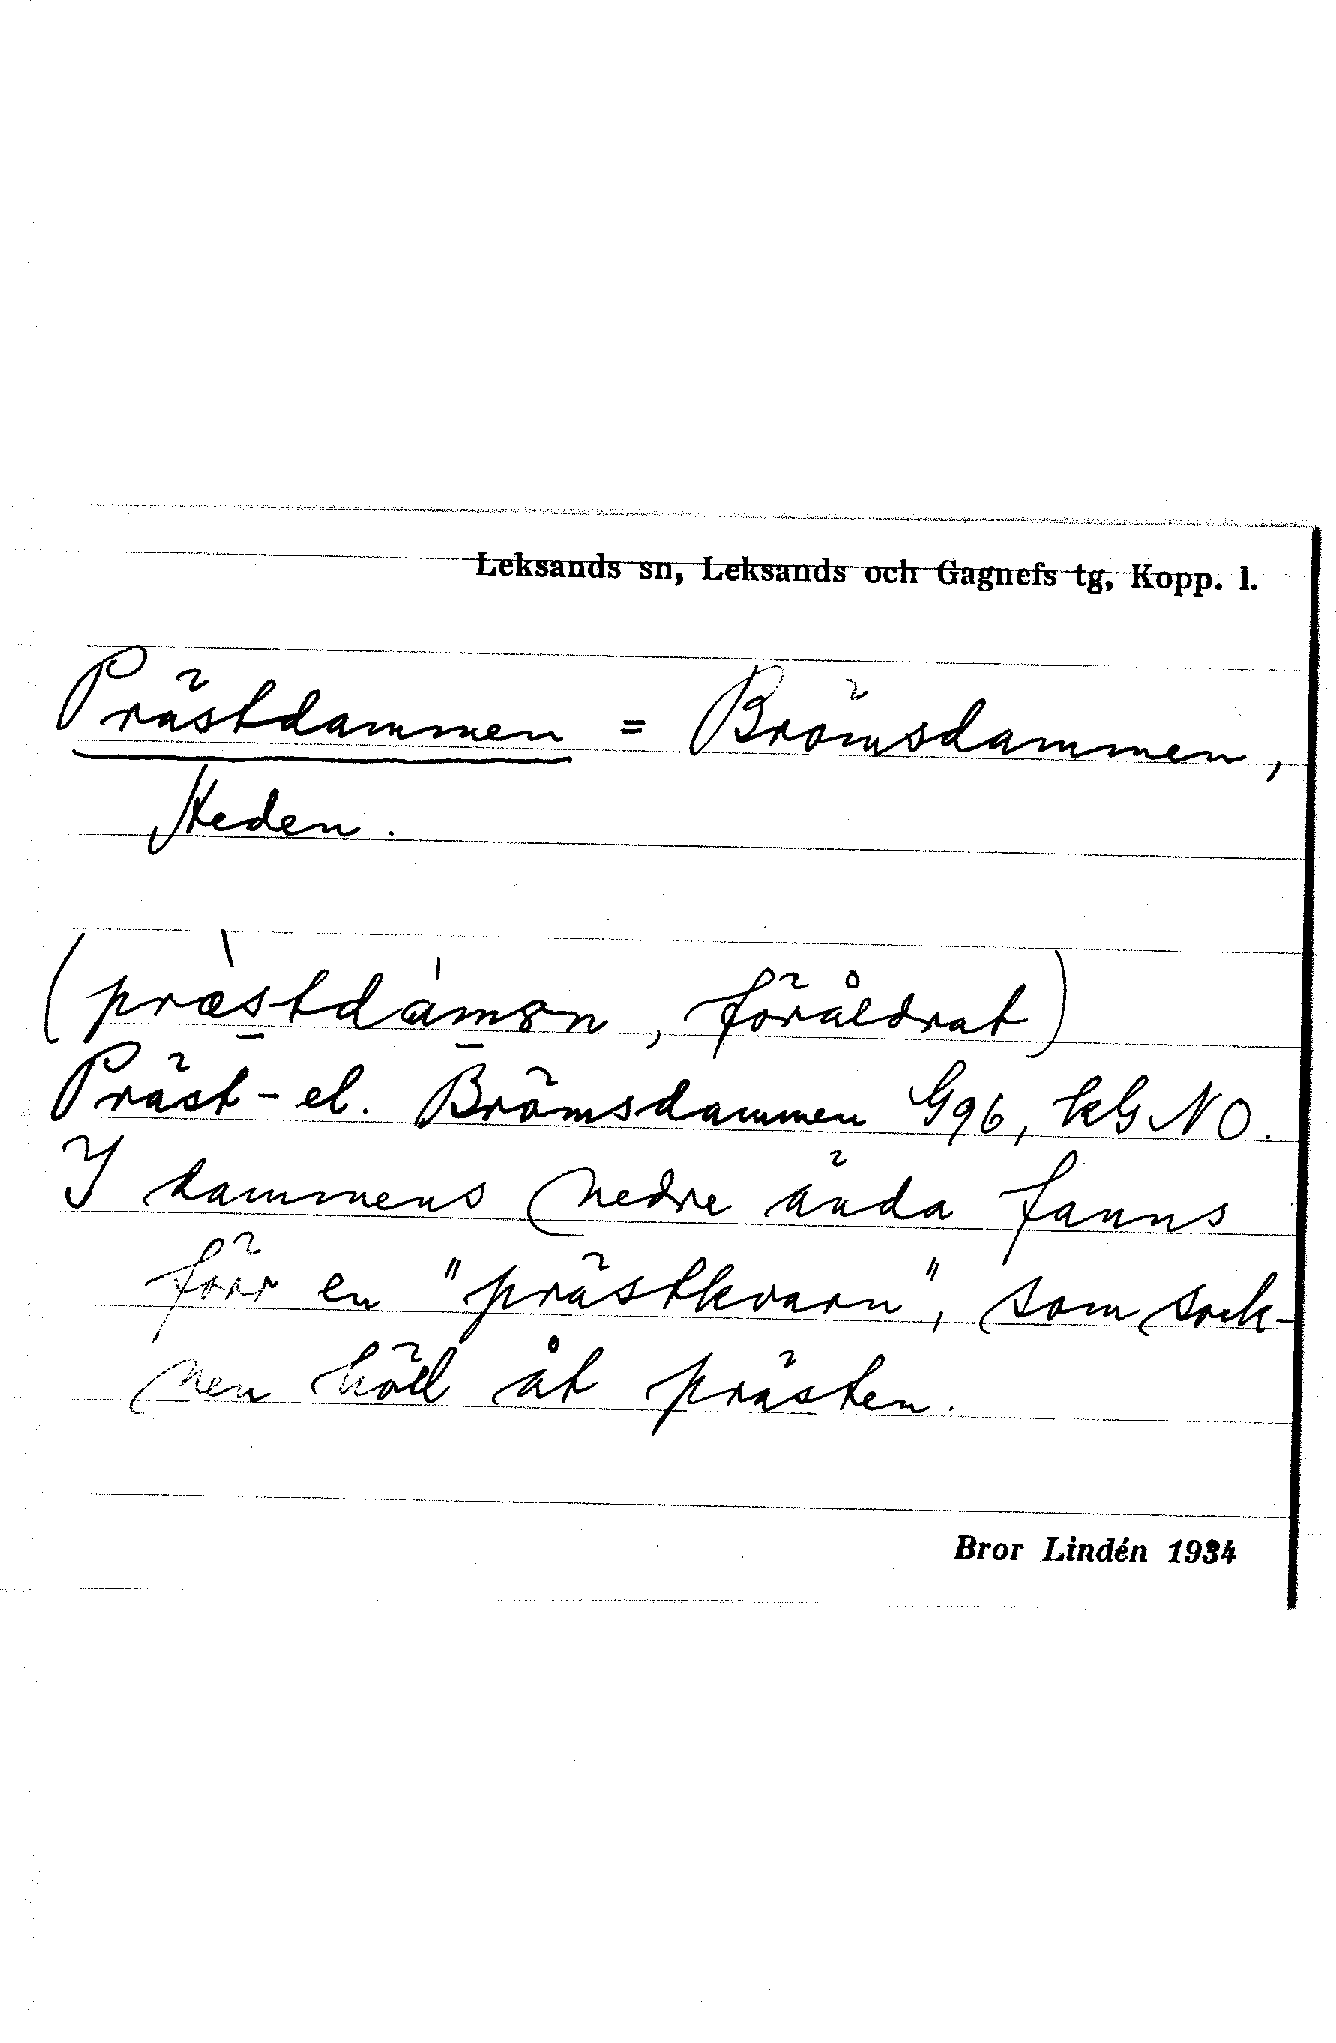 Leksands sn, Leksands och Gagnefs tg, Kopp. l.
Prästdammen = Brömsdammen,
Heden.
(præ̀stdámən, föråldrat)
Präst- el. Brömsdammen G96, kG NO.
I dammens nedre ända fanns
förr en "prästkvarn", som sock-
nen höll åt prästen.
Bror Lindén 1934